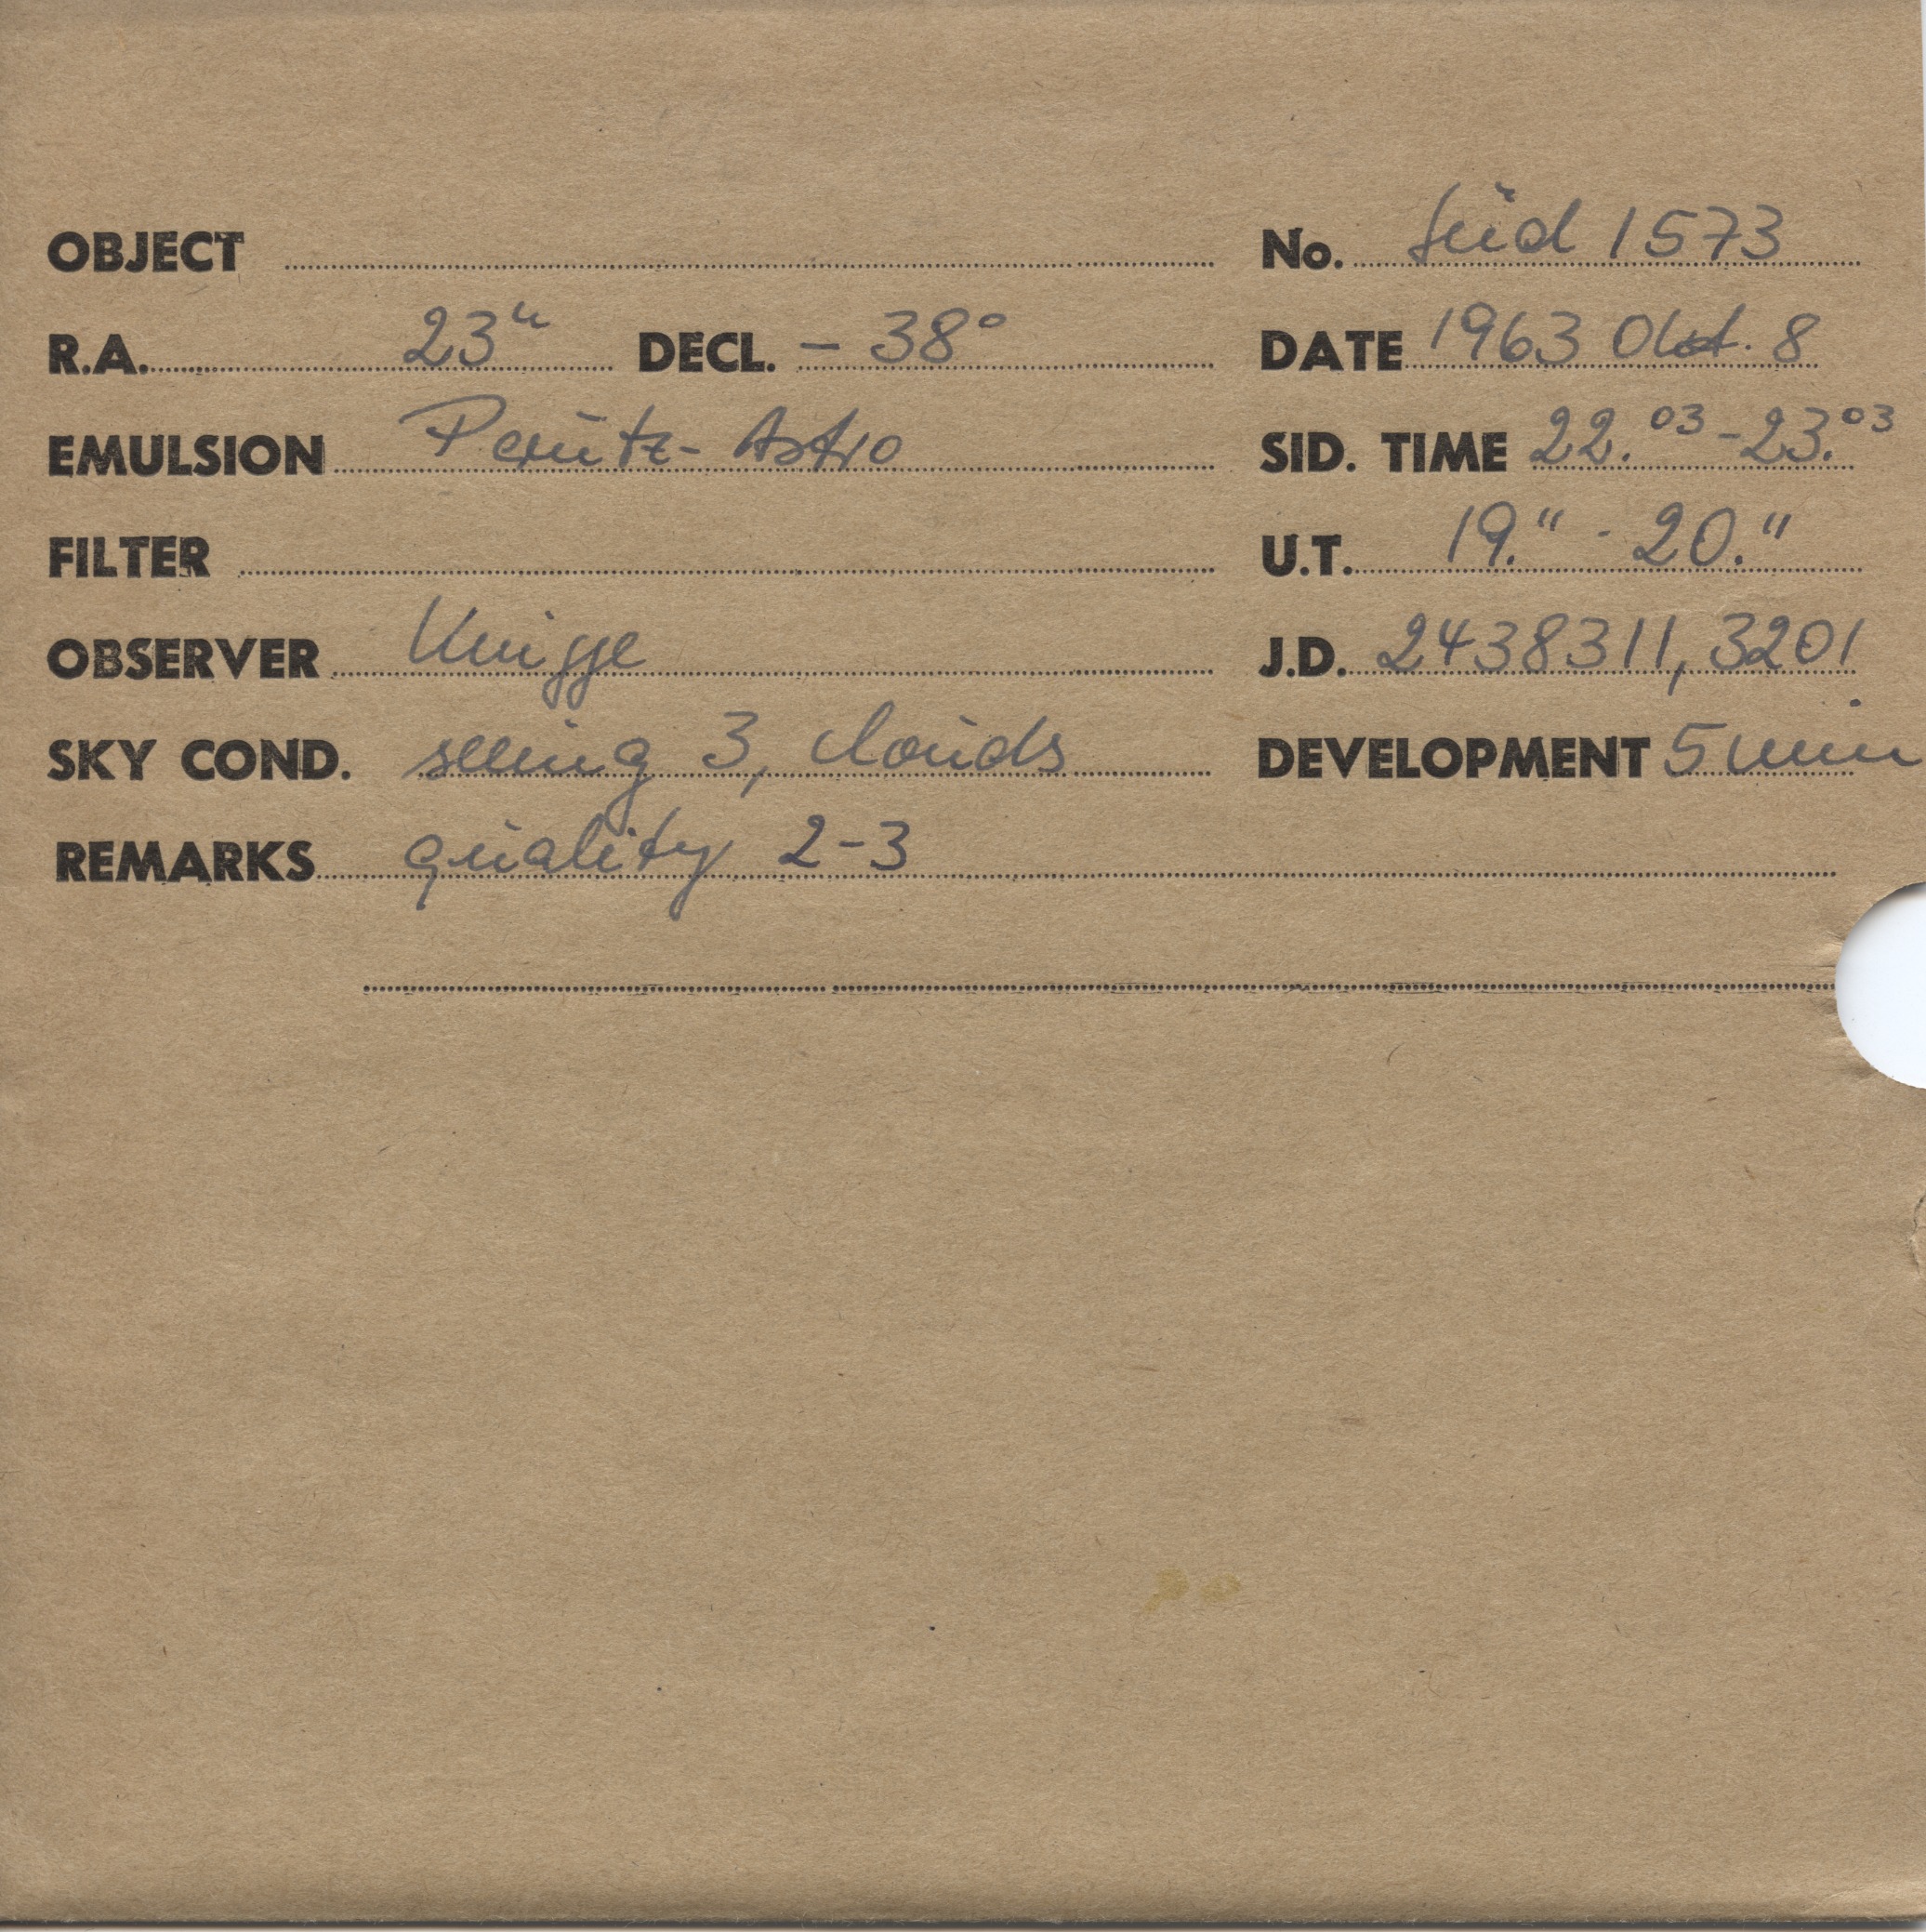 OBJECT No. Süd 1573
R.A. 23h DECL. - 38°
DATE 1963 Okt. 8
EMULSION Perutz-Astro SID. TIME 22.03 - 23.03
FILTER U.T. 19.11 - 20.11
OBSERVER Knigge J.D. 2438311,3201
SKY COND. seeing 3, clouds DEVELOPMENT 5 min
REMARKS quality 2-3